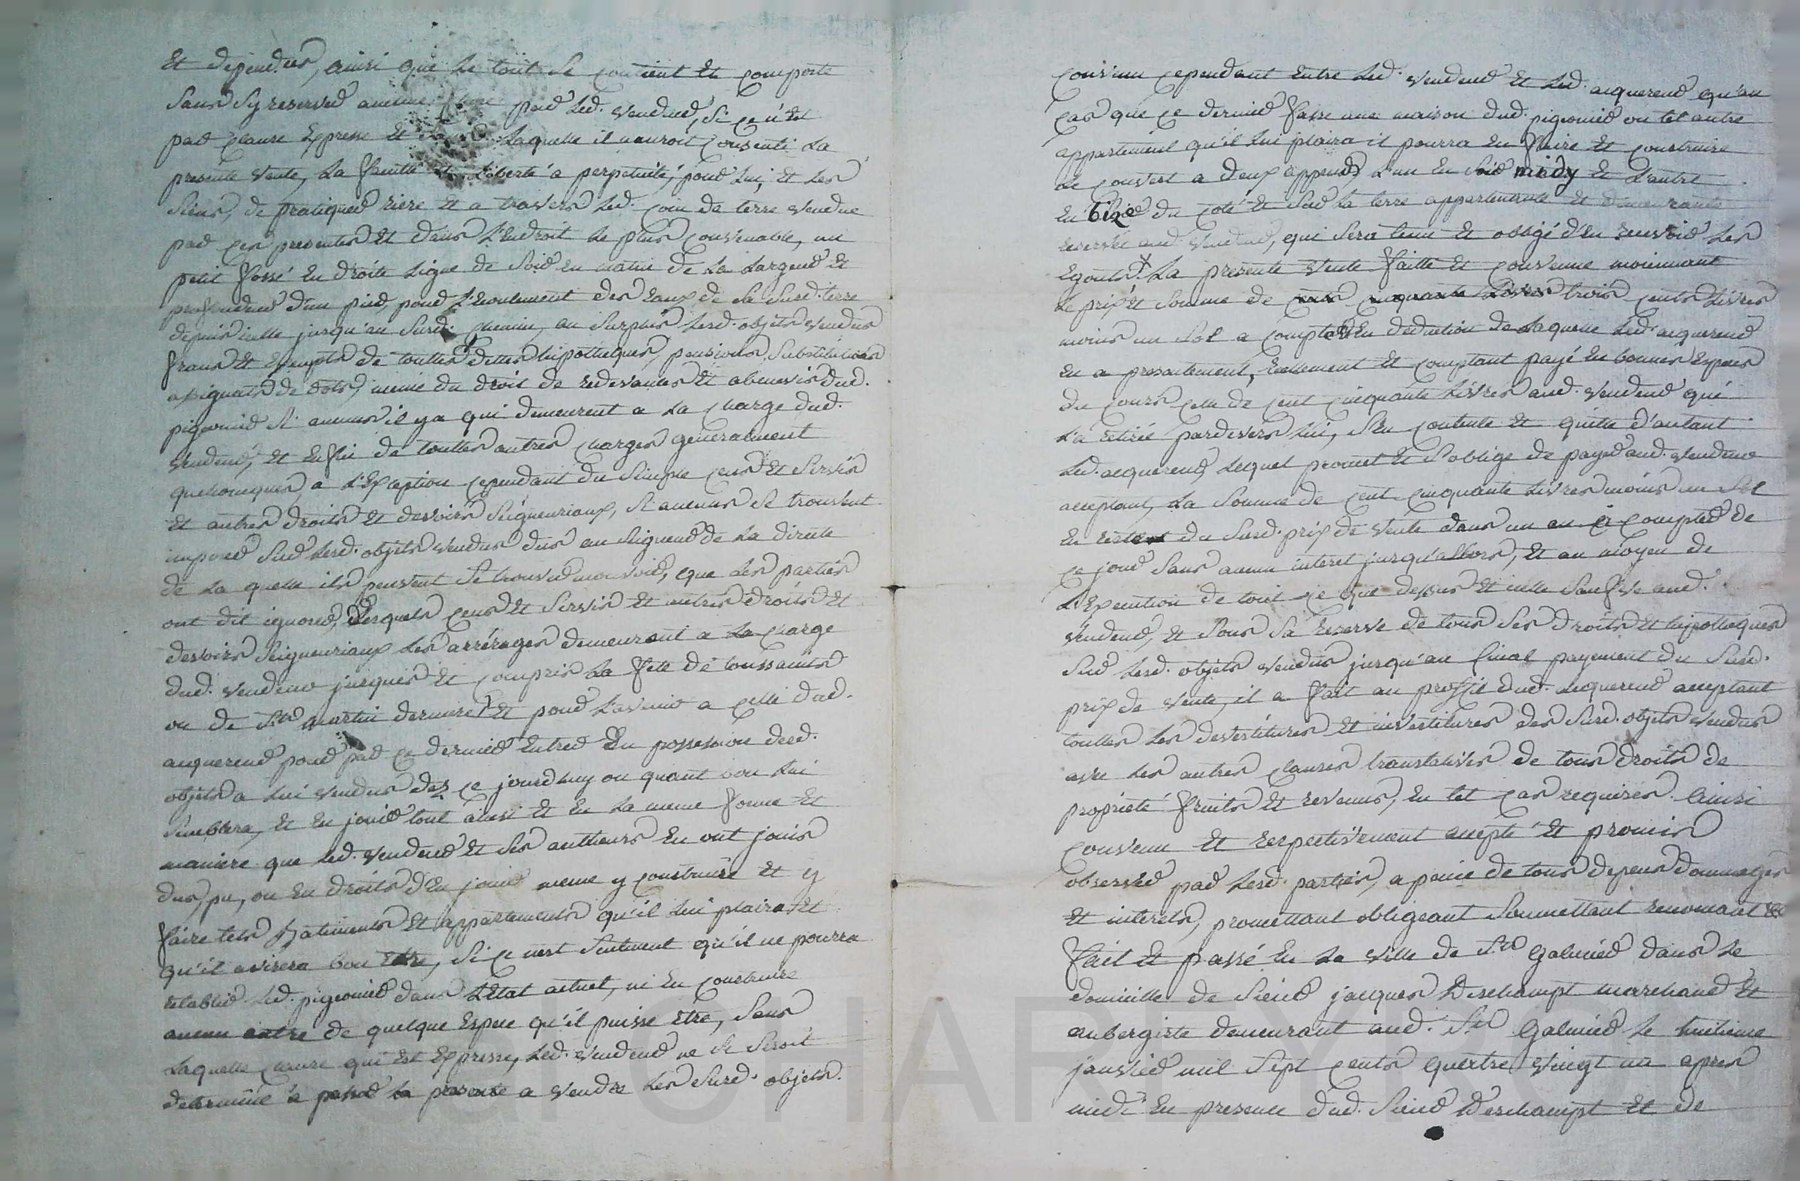 Et dépendces, ainsi que le tout se contient Et comporte
sans s'y reserver aucune par led. vendeur, si ce n'est
par clause Expresse Et laquelle il nauroit Consenti La
presente vente, La faculté Liberté a perpetuité, pour Lui, Et les
siens, de pratiquer riere Et a travers led. coin de terre vendue
par ces presentes Et dans L'Endroit le plus convenable, un
petit fossé En droite Ligne de soir en matin de la Largeur Et
profondeur d'un pied pour L'Ecoulement des Eaux de sa susd. terre
depuis icelle jusqu'au susd. chemin, au surplus lesd. objets vendus
francs Et Exempts de touttes dettes hipotheques, pensions, substitutions
assignats de dots, meme du droit de redevances Et abenevis dud.
pigeonier si aucuns il y a qui demeurent a La charge dud.
vendeur, Et Enfin de touttes autres charges generalement
quelconques, a L'Exception cependant du simple cens Et servis
Et autres droits Et devoirs seigneuriaux, si aucuns se trouvent
imposés sur lesd. objets vendus dus au seigneur de La directe
de La quelle ils peuvent se trouver mouvoir, que Les parties
ont dit ignorer, Desquels cens Et servis Et autres droits Et
devoirs seigneuriaux Les arrérages demeurant a La charge
dud. vendeur jusques Et compris La fete de toussaints
ou de St. martin derniere, Et pour L'avenir a celle dud.
acquereur pour par ce dernier Entrer En possession desd.
objets a Lui vendus dez ce jourdhuy ou quant bon Lui
semblera, Et En jouir tout ainsi Et En La meme forme Et
maniere que led. vendeur Et ses autheurs En ont jouis
dus, pu, ou En droits d'En jouir meme y construire Et y
faire tels Batiments Et appartements qu'il Lui plaira Et
qu'il avisera bon Etre, si ce n'est seulement qu'il ne pourra
retablir led. pigeonier dans L'Etat actuel, ni En construire
aucun autre de quelque Espece qu'il puisse Etre, sans
Laquelle clause qui Est Expresse, led. vendeur ne se seroit
determiné a passer la presente a vendre Les susd. objets.
convenu cependant Entre led. vendeur Et led. acquereur qu'au
cas que ce dernier fasse une maison dud. pigeonier ou tel autre
appartement qu'il Lui plaira il pourra En faire Et construire
Le couvert a deux appends L'un En soir midy Et L'autre
En bize du coté Et sur La terre appartenante Et demeurante
reservée aud. vendeur, qui sera tenu Et obligé d'En recevoir Les
Egouts. La presente vente faitte Et convenue moiennant
Le prix Et somme de trois cents Livres
moins un sol a compte Et En deduction de Laquelle Led. acquereur
En a presentement, reellement Et comptant payé En bonnes Especes
du cours celle de cent cinquante Livres aud. vendeur qui
L'a retirée pardevers Lui, s'En contente Et quitte d'autant
Led. acquereur, Lequel promet Et s'oblige de payer aud. vendeur
acceptant, La somme de cent cinquante Livres moins un sol
En restant du susd. prix de vente dans un an a compter de
ce jour sans aucun interet jusqu'alhors, Et au moyen de
L'Execution de tout ce que dessus Et icelle sauf Et aud.
vendeur, Et sous sa reserve de tous ses droits Et hipotheques
sur Lesd. objets vendus jusqu'au final payement du susd.
prix de vente, il a fait au proffit dud. acquereur acceptant
touttes Les devestitures Et investitures des susd. objets vendus
avec Les autres clauses translatives de tous droits de
proprieté fruits Et revenus, En tel cas requises. Ainsi
convenu Et respectivement accepté Et promis
observer par Lesd. parties, a peine de tous depens dommages
Et interets, promettant obligeant soumettant renonçant &c
fait Et passé En La ville de St. Galmier dans Le
domicille de sieur jacques Deschampt marchand Et
aubergiste demeurant aud. St. Galmier Le huitieme
janvier mil sept cents quatre vingt un apres
midi En presence dud. sieur Deschampt Et de
CHAREYRO